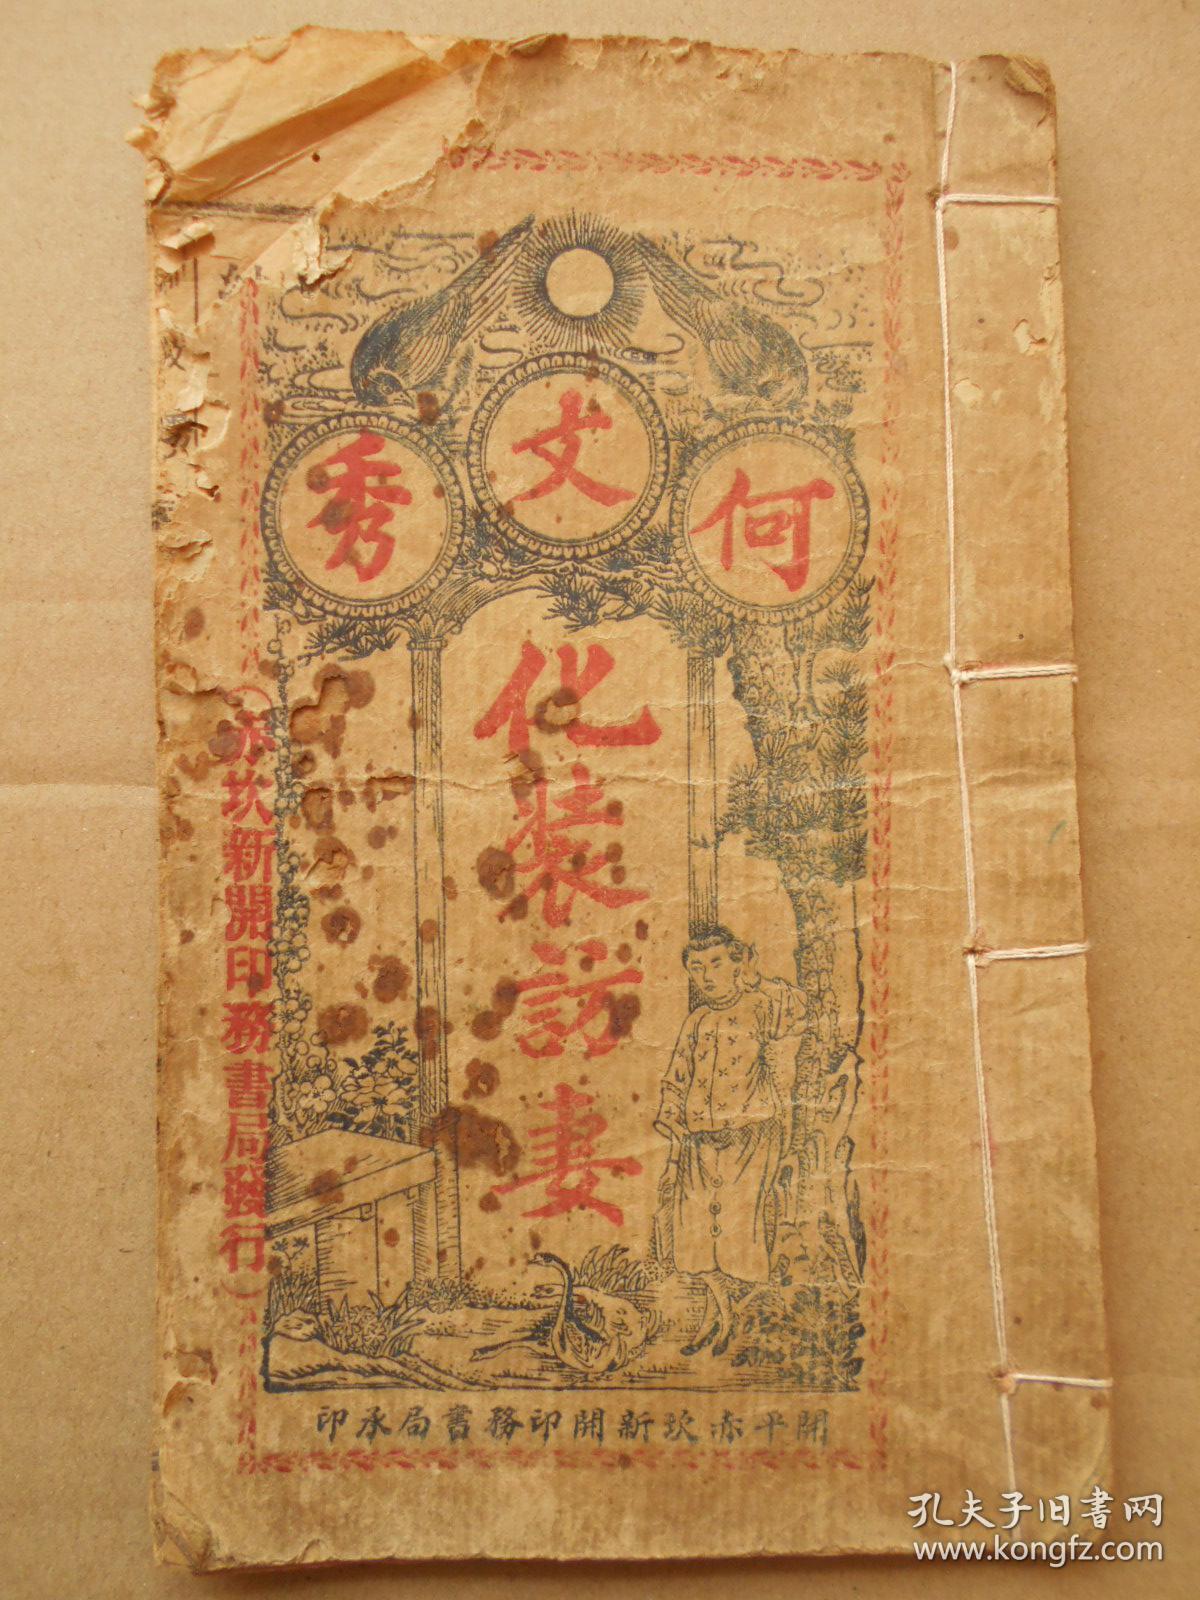 何文秀
化裝訪妻
（赤坎新開印務書局發行）
開平赤坎新開印務書局承印
孔夫子旧書网
www.kongfz.com